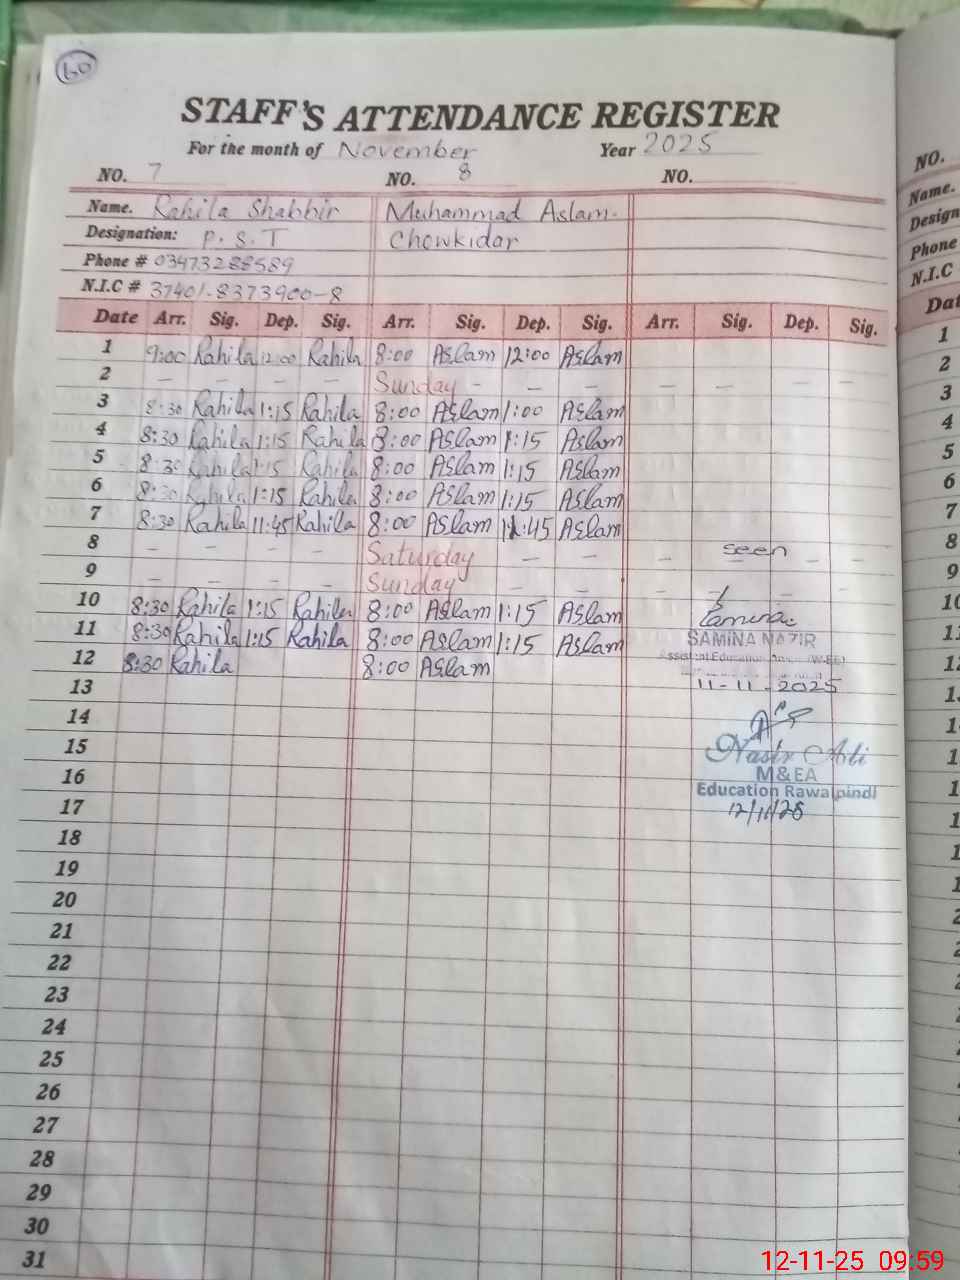 60
STAFF'S ATTENDANCE REGISTER
For the month of November Year 2025
NO. 7 NO. 8 NO.
Name. Rahila Shabbir Muhammad Aslam.
Designation: P.S.T Chowkidar
Phone # 03473288589
N.I.C # 37401-8373900-8
Date Arr. Sig. Dep. Sig. Arr. Sig. Dep. Sig. Arr. Sig. Dep. Sig.
1 9:00 Rahila 12:00 Rahila 8:00 Aslam 12:00 Aslam
2 - - - - Sunday - - - - - - -
3 8:30 Rahila 1:15 Rahila 8:00 Aslam 1:00 Aslam
4 8:30 Rahila 1:15 Rahila 8:00 Aslam 1:15 Aslam
5 8:30 Rahila 1:15 Rahila 8:00 Aslam 1:15 Aslam
6 8:30 Rahila 1:15 Rahila 8:00 Aslam 1:15 Aslam
7 8:30 Rahila 11:45 Rahila 8:00 Aslam 11:45 Aslam
8 - - - - Saturday - - - seen - -
9 - - - - Sunday - - - - - -
10 8:30 Rahila 1:15 Rahila 8:00 Aslam 1:15 Aslam Samina
11 8:30 Rahila 1:15 Rahila 8:00 Aslam 1:15 Aslam SAMINA NAZIR
12 8:30 Rahila 8:00 Aslam Assistant Education
13 11-11-2025
14
15 Nasir Ali
16 M&EA
Education Rawalpindi
17 12/11/25
18
19
20
21
22
23
24
25
26
27
28
29
30
31
NO.
Name.
Design
Phone
N.I.C
Dat
1
2
3
4
5
6
7
8
9
10
11
12
12-11-25 09:59